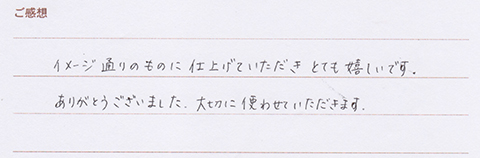 ご感想
イメージ通りのものに仕上げていただきとても嬉しいです。
ありがとうございました。大切に使わせていただきます。